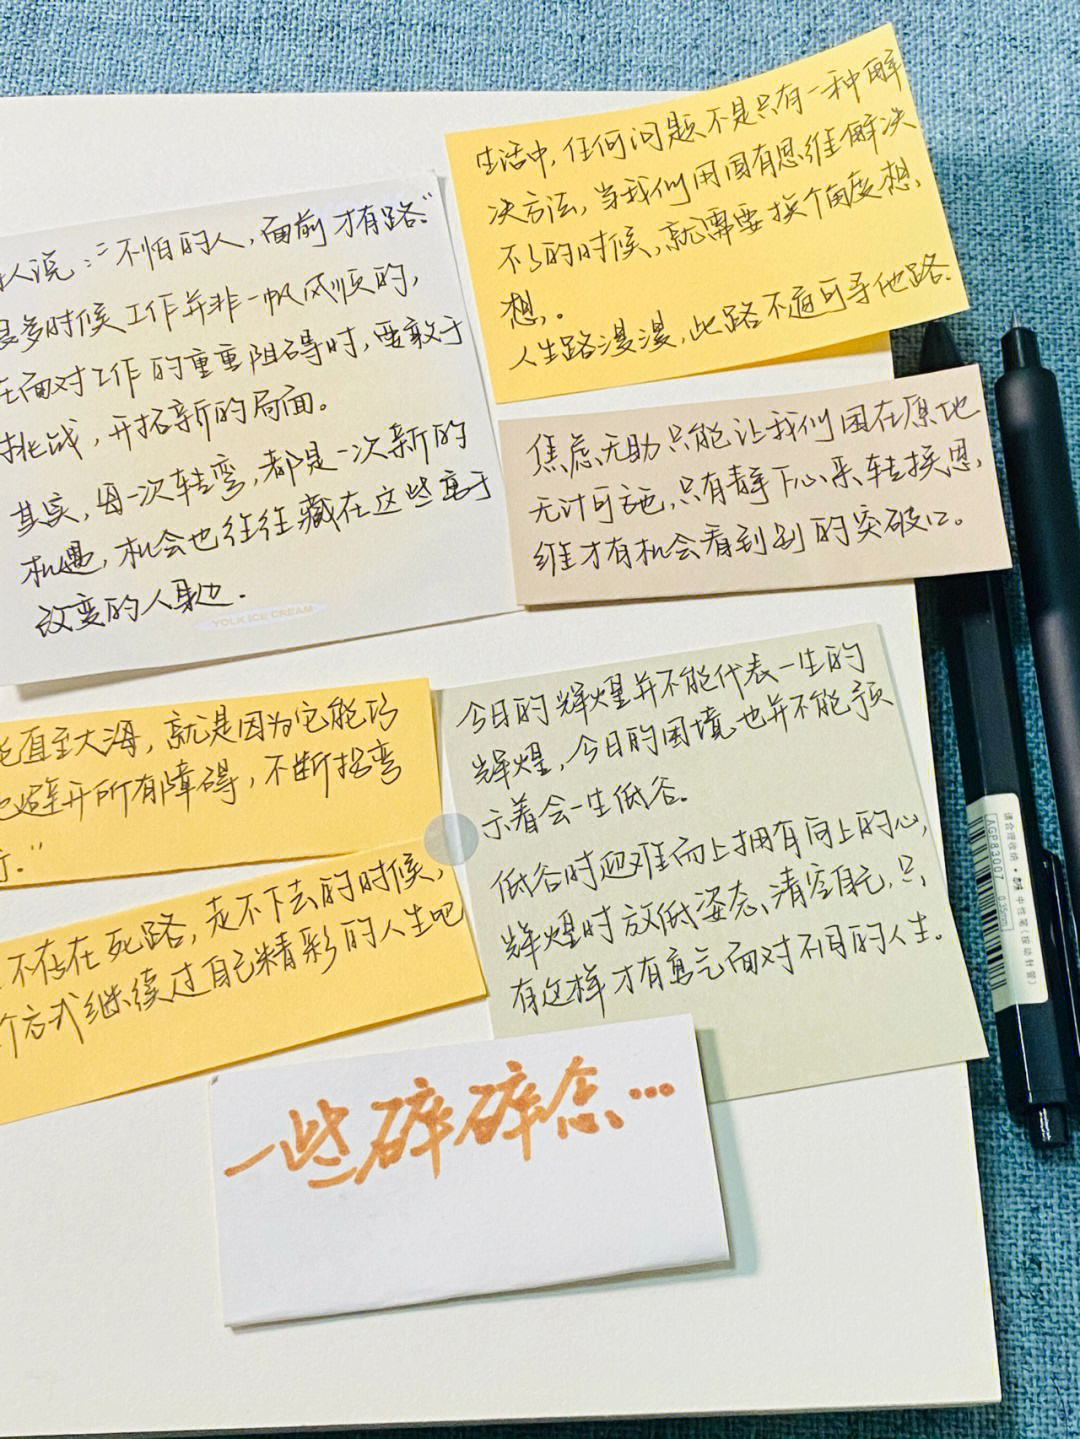 生活中,任何问题不是只有一种解
决方法,当我们用固有思维解决
不了的时候,就需要换个角度想
想,。
人生路漫漫,此路不通可寻他路.
人说:“不怕的人,面前才有路.”
多时候工作并非一帆风顺的,
在面对工作的重重阻碍时,要敢于
挑战,开拓新的局面。
其实,每一次转弯,都是一次新的
机遇,机会也往往藏在这些勇于
改变的人身边.
YOLK ICE CREAM
焦虑无助只能让我们困在原地
无计可施,只有静下心来,转换思
维才有机会看到别的突破口。
能直至大海,就是因为它能巧
地避开所有障碍,不断拐弯
行.”
不存在死路,走不下去的时候,
个方式继续过自己精彩的人生吧
今日的辉煌并不能代表一生的
辉煌,今日的困境也并不能预
示着会一生低谷.
低谷时迎难而上拥有向上的心,
辉煌时放低姿态、清空自己,只
有这样才有勇气面对不同的人生.
一些碎碎念...
请合理收纳·中性笔(按动针管)
AGP83007 0.35mm